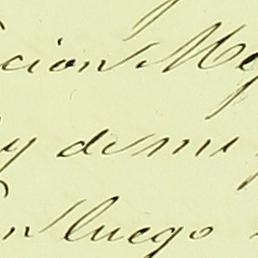 cion Me
y de mi
n luego